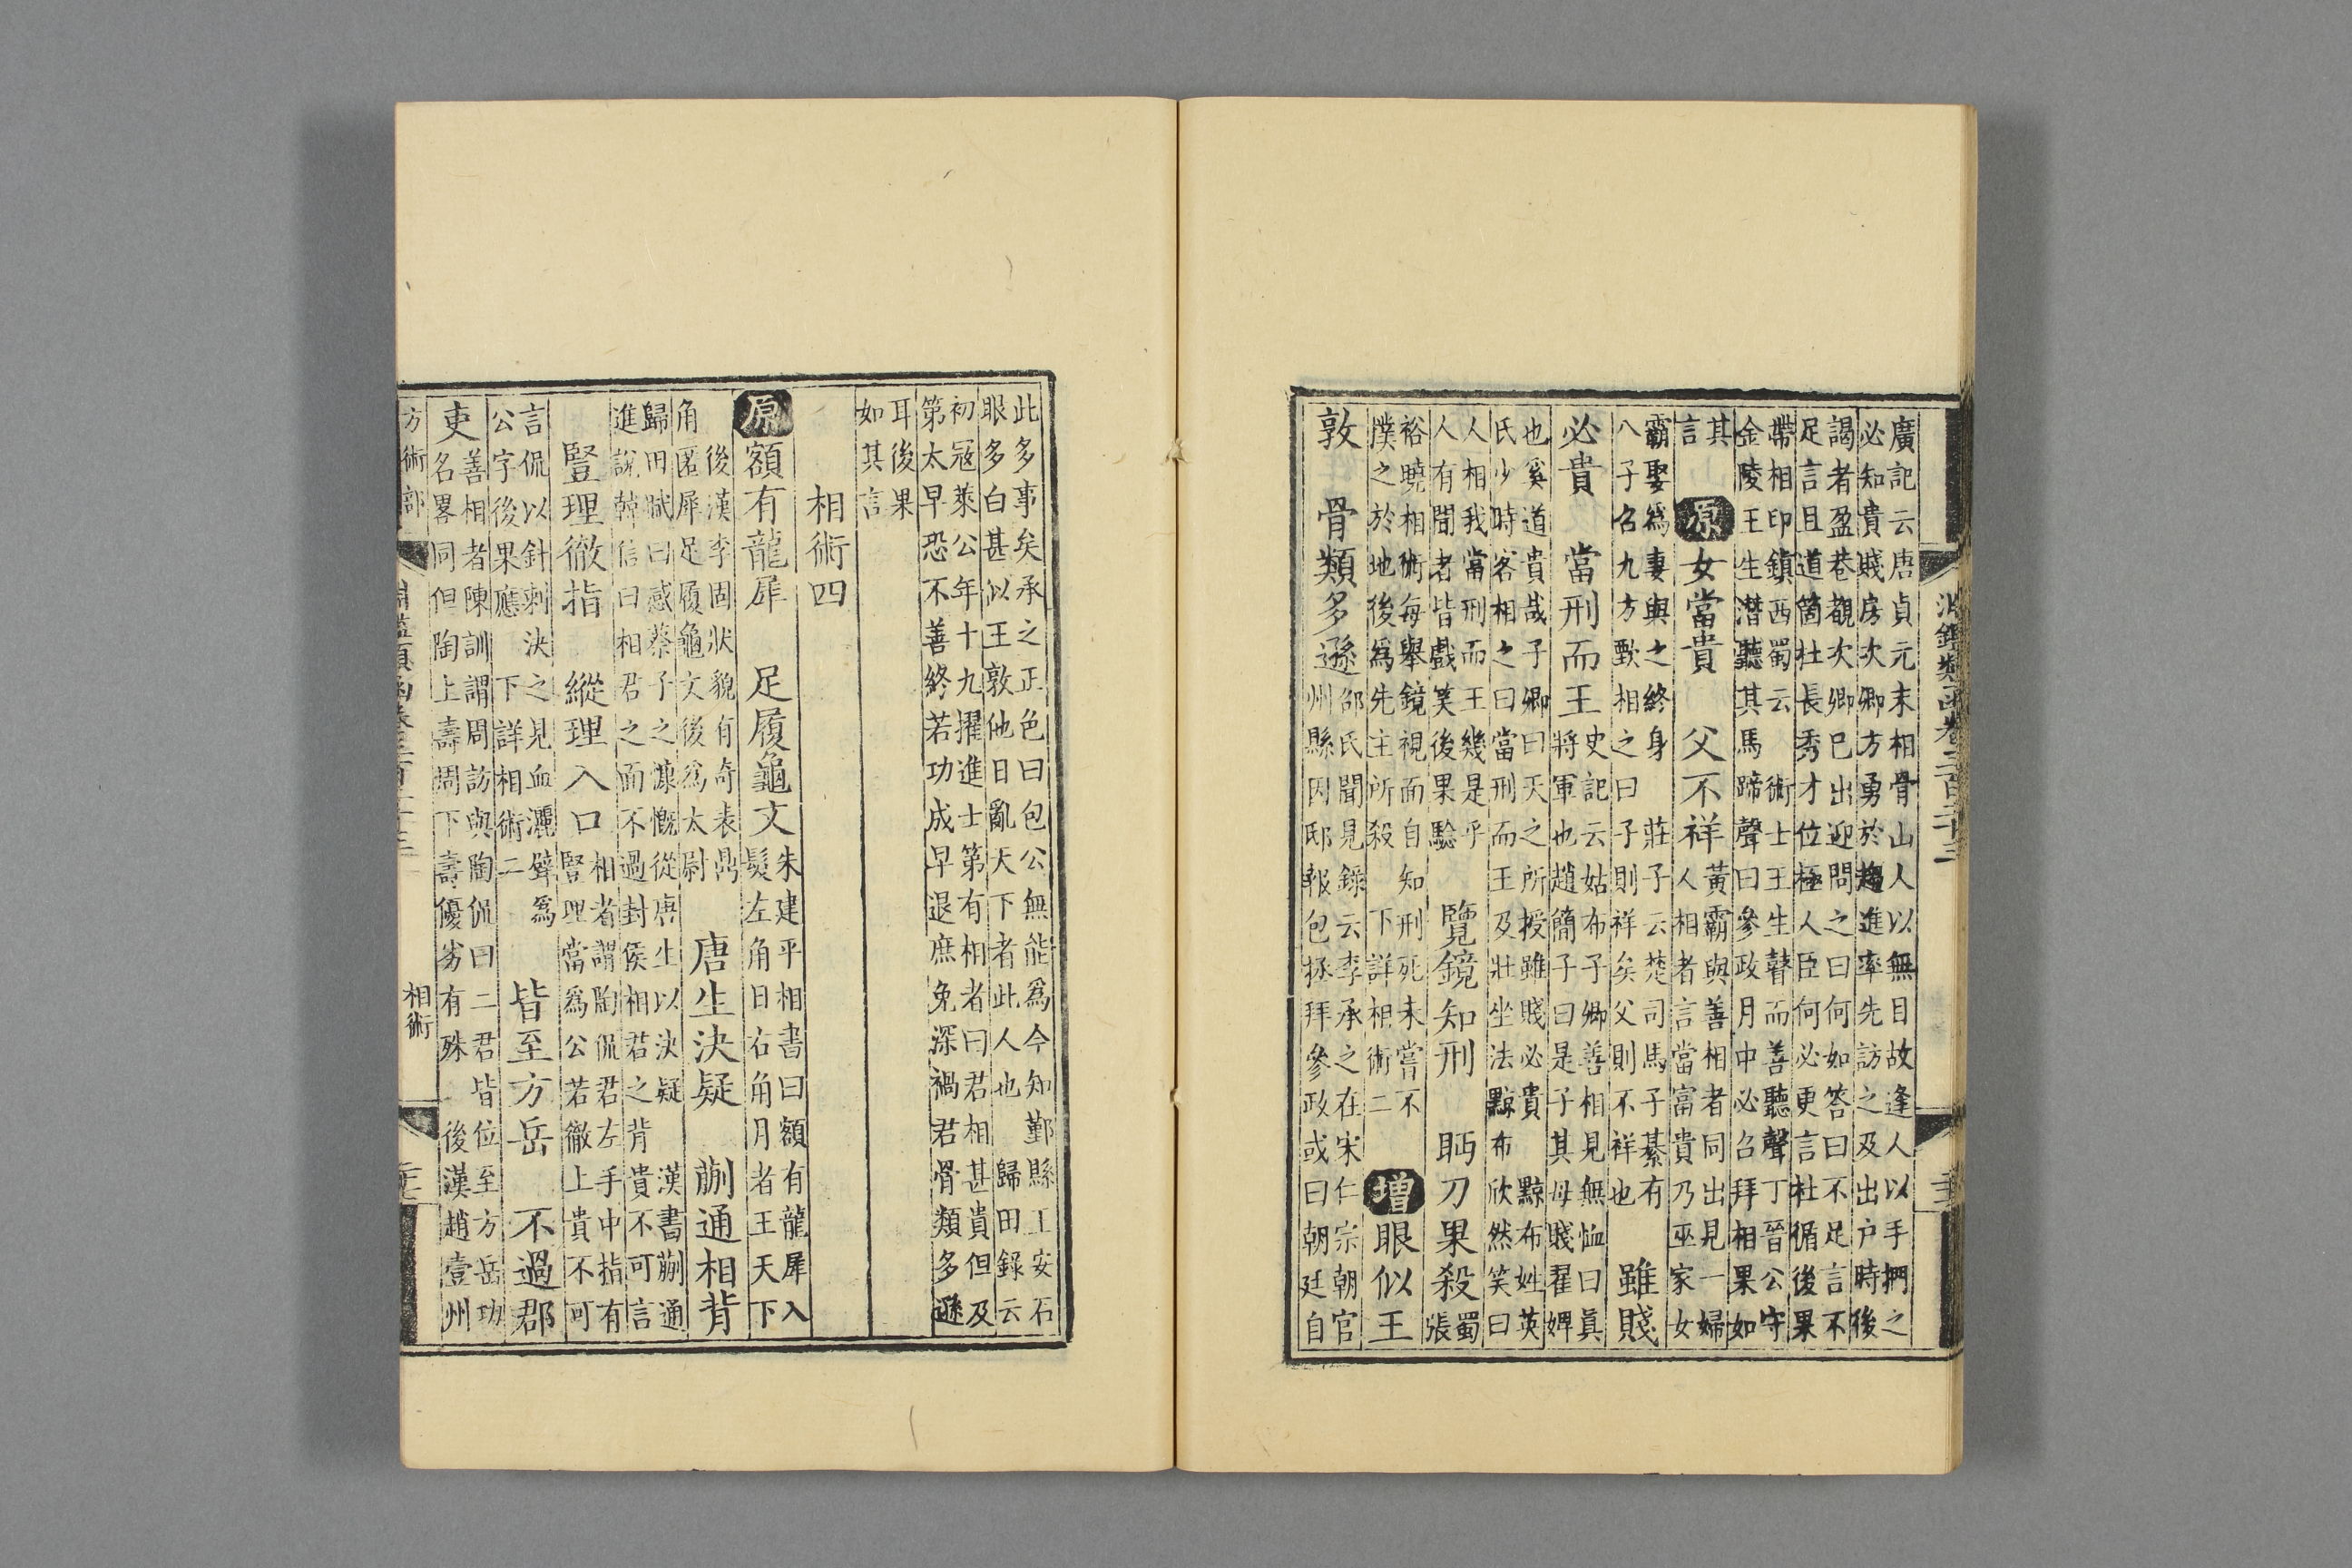 廣記云唐貞元末相骨山人以無目故逢人以手捫之
必知貴賤房次卿方勇於趨進率先訪之及出户時後
謁者盈巷覩次卿巳出迎問之曰何如答曰不足言不
足言且道箇杜長秀才位極人臣何必更言杜循後果
帶相印鎮西蜀云 術士王生瞽而善聽聲丁晉公守
金陵王生潛聽其馬蹄聲曰參政月中必召拜相果如
其
言
原 女當貴 父不祥
黃霸與善相者同出見一婦
人相者言當富貴乃巫家女
霸娶爲妻與之終身 莊子云楚司馬子綦有
八子召九方歅相之曰 子則祥矣父則不祥也
雖賤
必貴 當刑而王
史記云姑布子卿善相見無恤曰真
將軍也趙簡子曰是子子其母賤翟婢
也奚道貴哉子卿曰天之所授雖賤必貴 黥布姓英
氏少時客相之曰當刑而王及壯坐法黥布欣然笑曰
人相我當刑而王幾是乎
人有聞者皆戲笑後果驗
覽鏡知刑 眄刀果殺
蜀
張
裕曉相術每舉鏡視而自知刑死未嘗不
撲之於地後爲先主所殺 下詳相術二
增 眼似王
敦 骨類多遜
邵氏聞見錄云李承之在宋仁宗朝官
州縣因邸報包拯拜參政或曰朝廷自
淵鑑類函卷三百二十三
此多事矣承之正色曰包公無能爲今知鄞縣王安石
眼多白甚似王敦他日亂天下者此人也 歸田錄云
初冦萊公年十九擢進士第有相者曰君相甚貴但及
第太早恐不善終若功成早退庶免深禍君骨類多遜
耳後果
如其言
相術四
原 額有龍犀 足履龜文
朱建平相書曰額有龍犀入
髮左角日右角月者王天下
後漢李固狀貌有奇表鼎
角匿犀足履龜文後爲太尉
唐生決疑 蒯通相背
歸田賦曰感蔡子之慷慨從唐生以決疑 漢書蒯通
進說韓信曰相君之面不過封侯相君之背貴不可言
豎理徹指 縱理入口
相者謂陶侃君左手中指有
豎理當爲公若徹上貴不可
言侃以針刺決之見血灑壁爲
公字後果應 下詳相術二
皆至方岳 不過郡
吏
善相者陳訓謂周訪與陶侃曰二君皆位至方岳功
名畧同但陶上壽周下壽優劣有殊 後漢趙壹州
方術部
相術